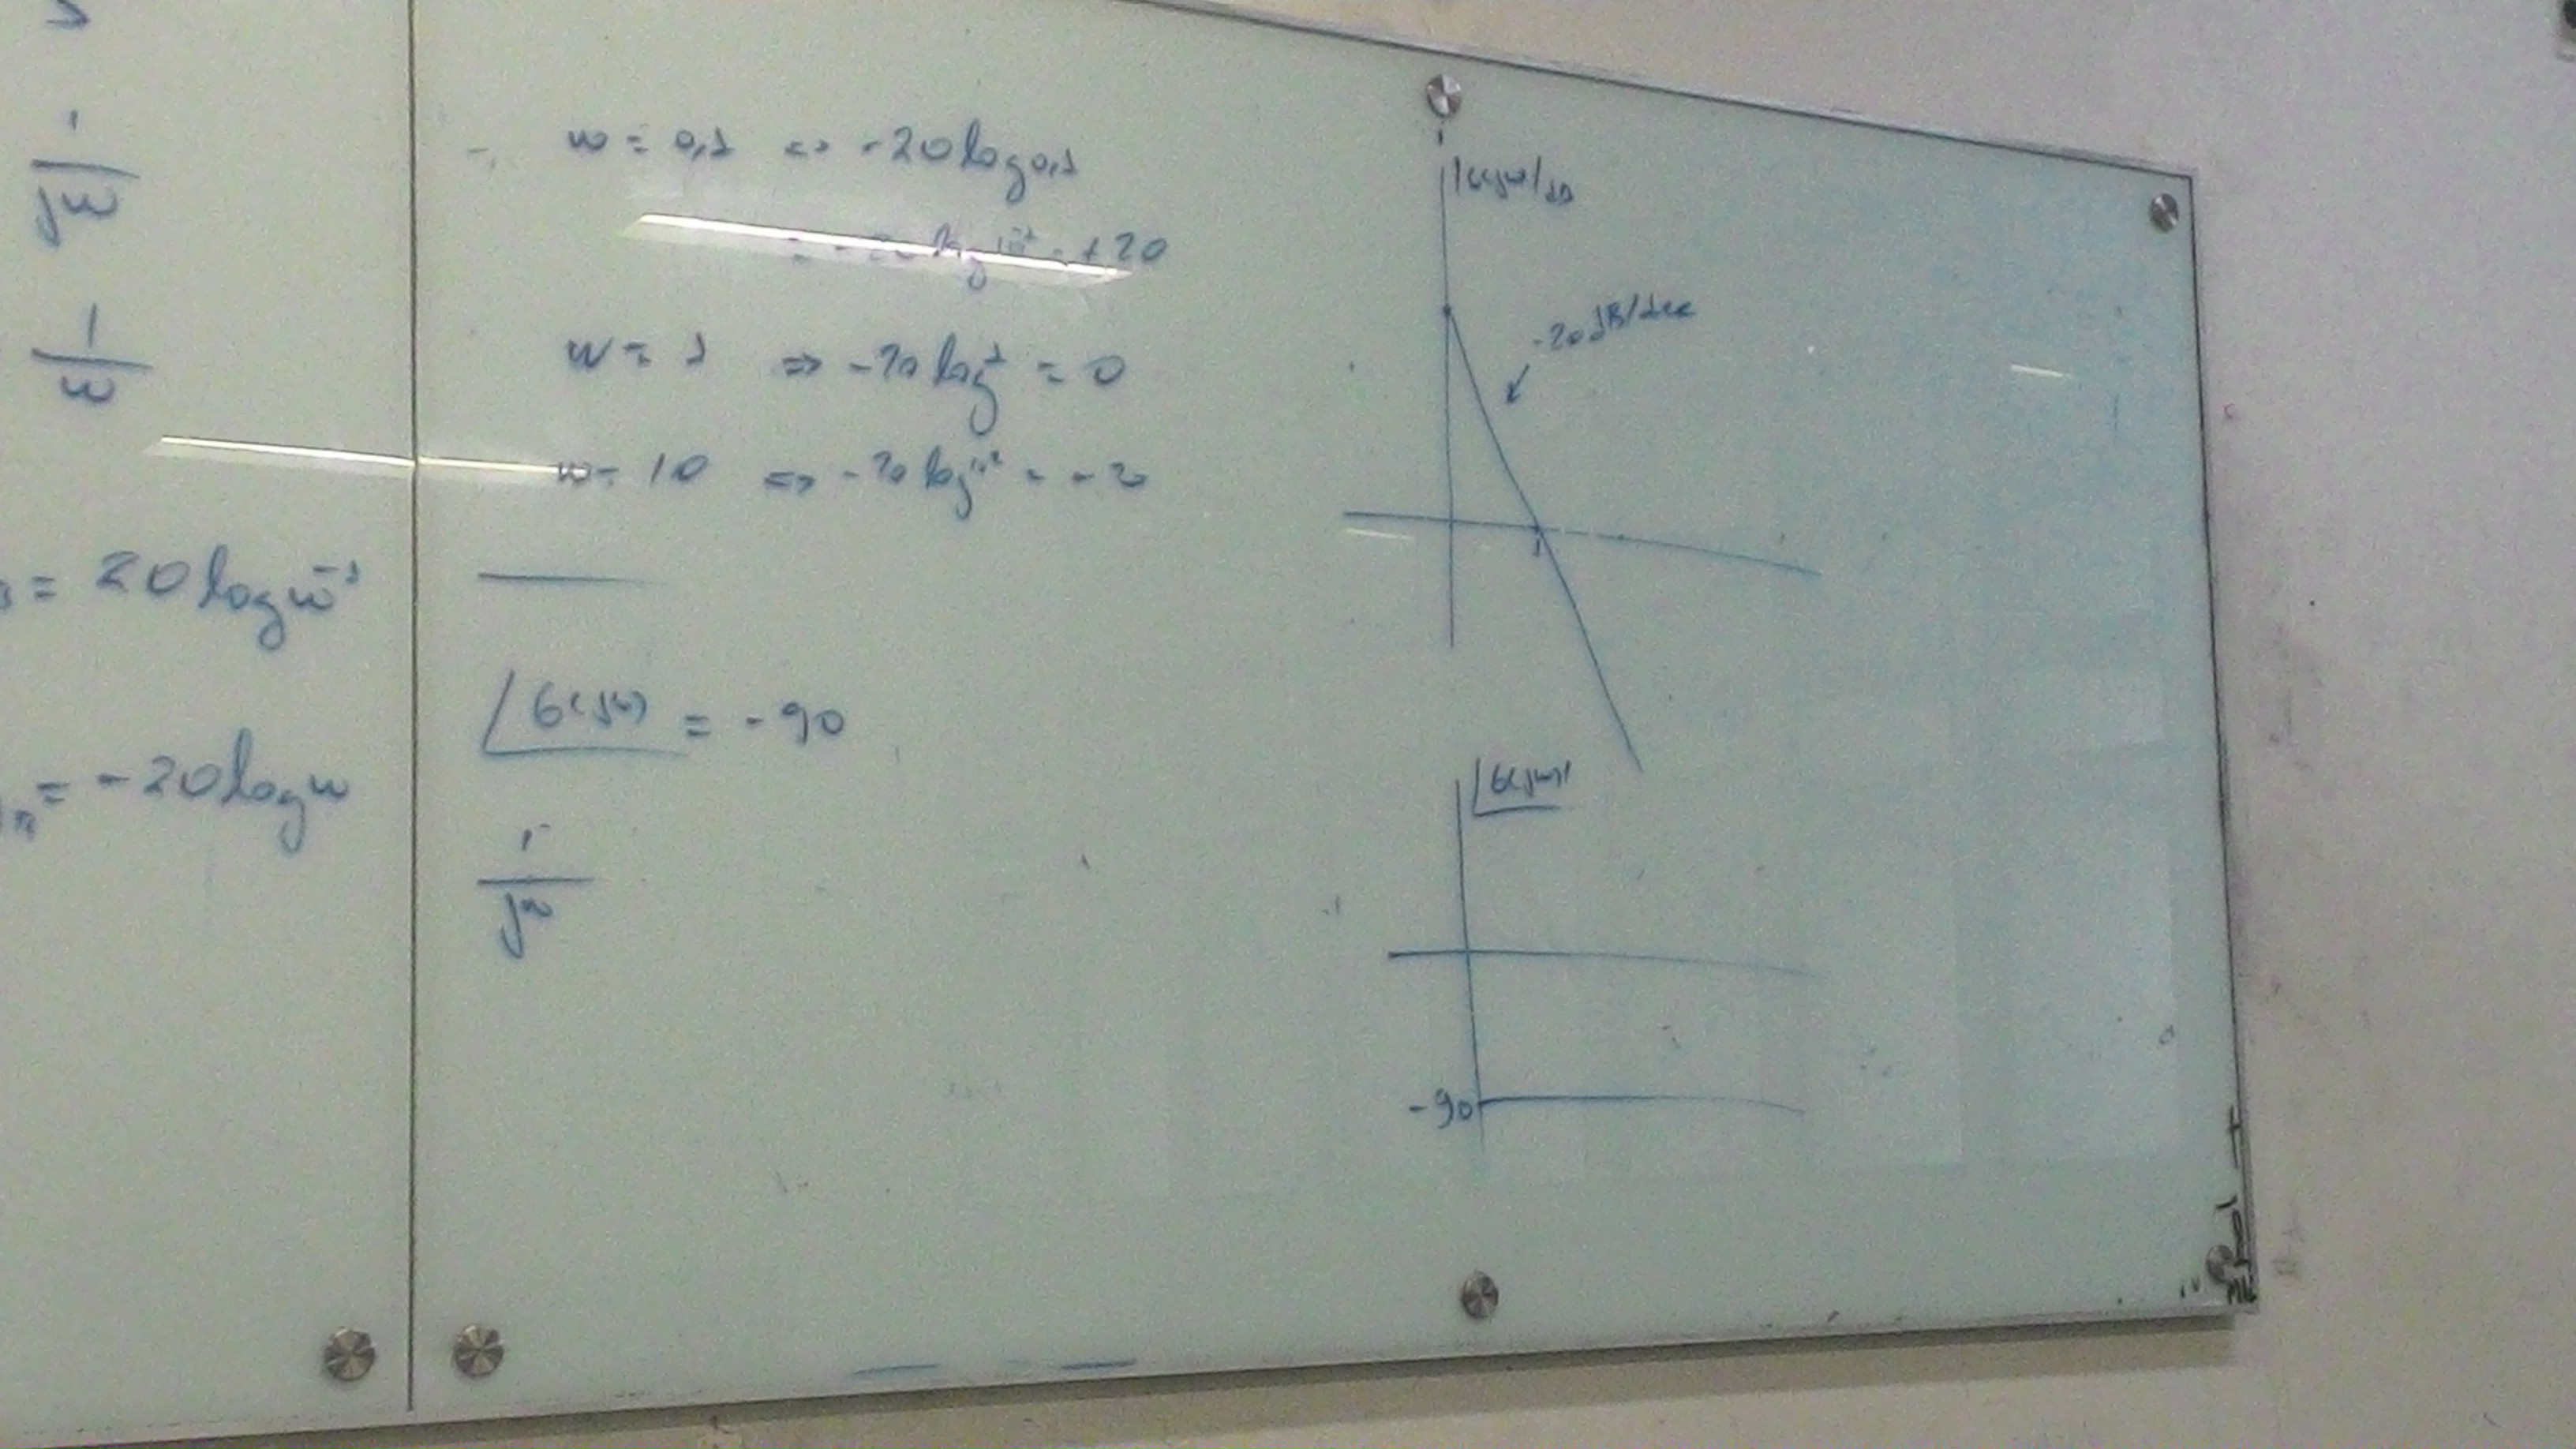 1
jω
1
ω
= 20 log ω⁻¹
= -20 log ω
ω = 0,1 <=> -20 log 0,1
= -20 log 10⁻¹ = +20
ω = 1 => -20 log 1 = 0
ω = 10 <=> -20 log 10 = -20
∠G(jω) = -90
1
jω
|G(jω)|dB
-20 dB/dec
1
∠G(jω)
-90